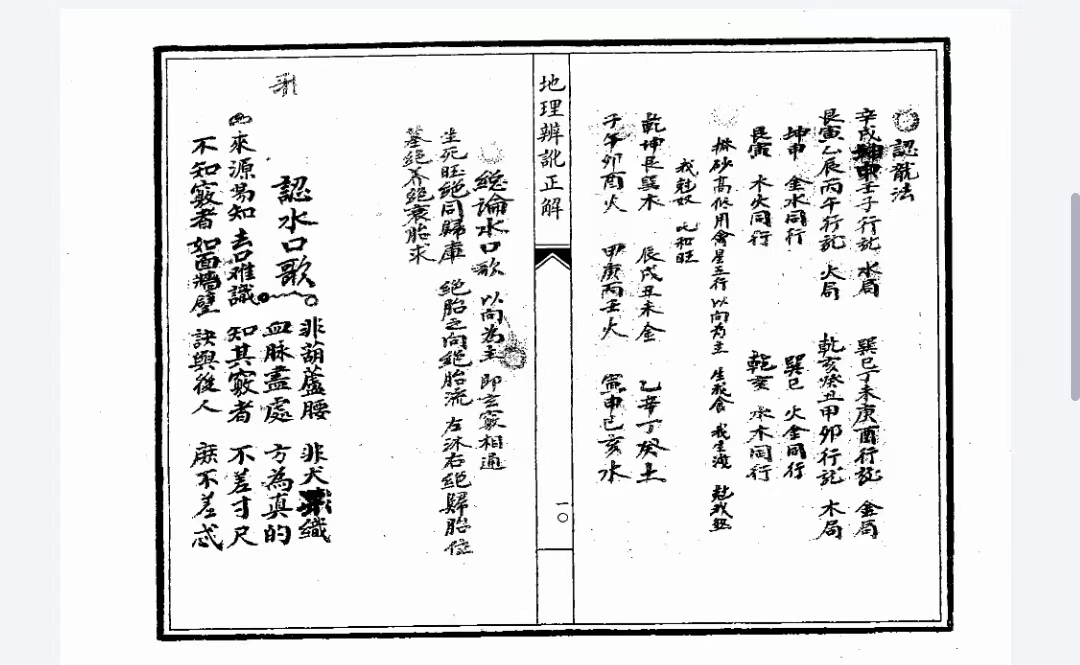 認龍法
辛戌壬子行龍 水局 巽巳丁未庚酉行龍 金局
艮寅乙辰丙午行龍 火局 乾亥癸丑甲卯行龍 木局
坤申 金水同行 巽巳 火金同行
艮寅 木火同行 乾亥 水木同行
撥砂高低用禽星五行以向為主 生我食 我生洩 尅我煞
我尅奴 比和旺
乾坤艮巽木 辰戌丑未金 乙辛丁癸土
子午卯酉火 甲庚丙壬火 寅申巳亥水
地理辨訛正解
一〇
總論水口歌 以向為主 即玄竅相通
生死旺絕同歸庫 絕胎之向絕胎流 左沐右絕歸胎位
墓絕養絕衰胎求
歌
認水口歌 非葫蘆腰 非犬織
血脉盡處 方為真的
來源易知 去口難識 知其竅者 不差寸尺
不知竅者 如面牆壁 訣與後人 庶不差忒